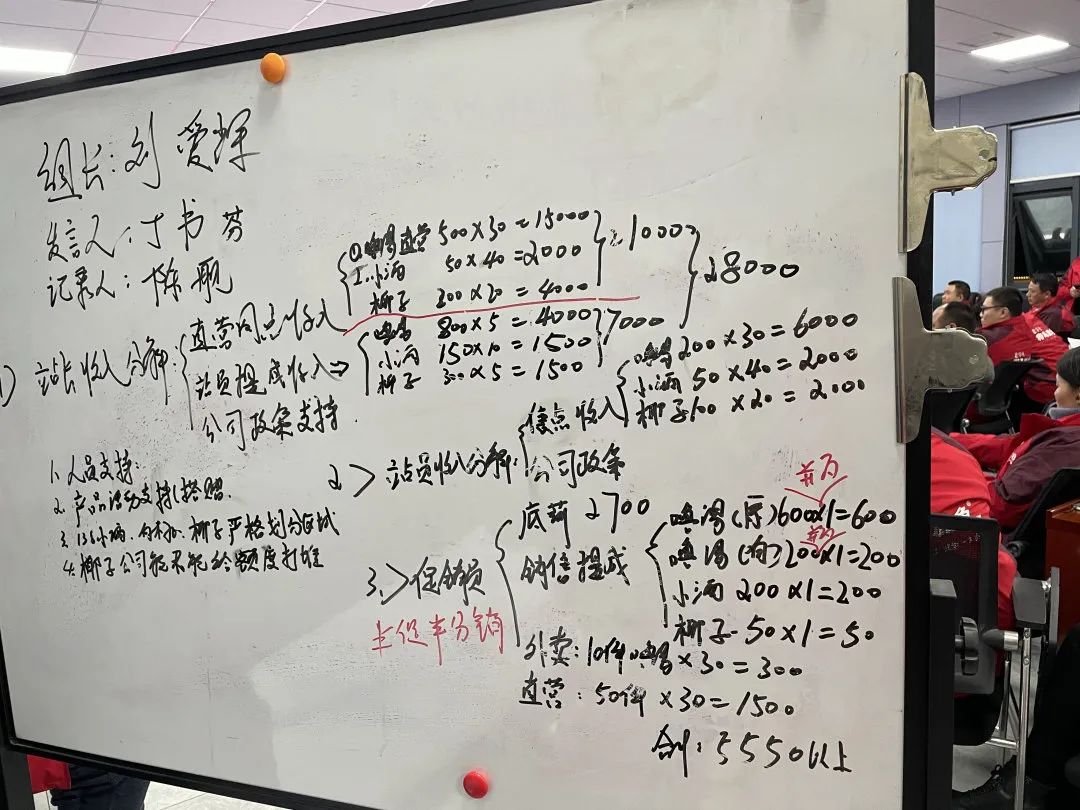 组长:刘爱辉
发言人:丁书芬
记录人:陈
1) 站长收入分解:
直营网点收入
① 直营 500×30=15000
小酒 50×40=2000
椰子 200×20=4000
21000
站员提成收入⇒
800×5=4000
小酒 150×10=1500
椰子 300×5=1500
7000
28000
公司政策支持
1. 人员支持:
2. 产品活动支持(搭赠.
3. 小酒、椰子严格划分区域
4. 椰子公司能不能给额度打堆
2> 站员收入分解:
点收入
200×30=6000
小酒 50×40=2000
椰子100×20=2000
公司政策
3.> 促销员
半促半分销
底薪 2700
销售提成
(厅)600×1=600
(肉)200×1=200
小酒 200×1=200
椰子-50×1=50
外卖:10件×30=300
直营:50件×30=1500
合计:5550以上